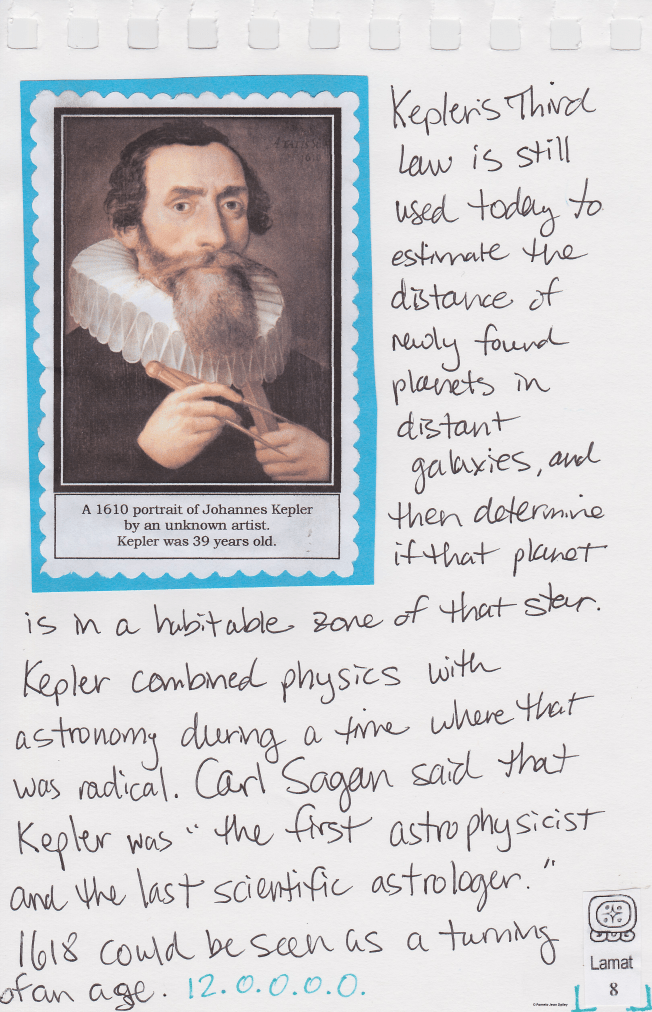 Kepler's Third
Law is still
used today to
estimate the
distance of
newly found
planets in
distant
galaxies, and
then determine
if that planet
is in a habitable zone of that star.
A 1610 portrait of Johannes Kepler
by an unknown artist.
Kepler was 39 years old.
Kepler combined physics with
astronomy during a time where that
was radical. Carl Sagan said that
Kepler was "the first astrophysicist
and the last scientific astrologer."
1618 could be seen as a turning
of an age. 12.0.0.0.0.
Lamat
8